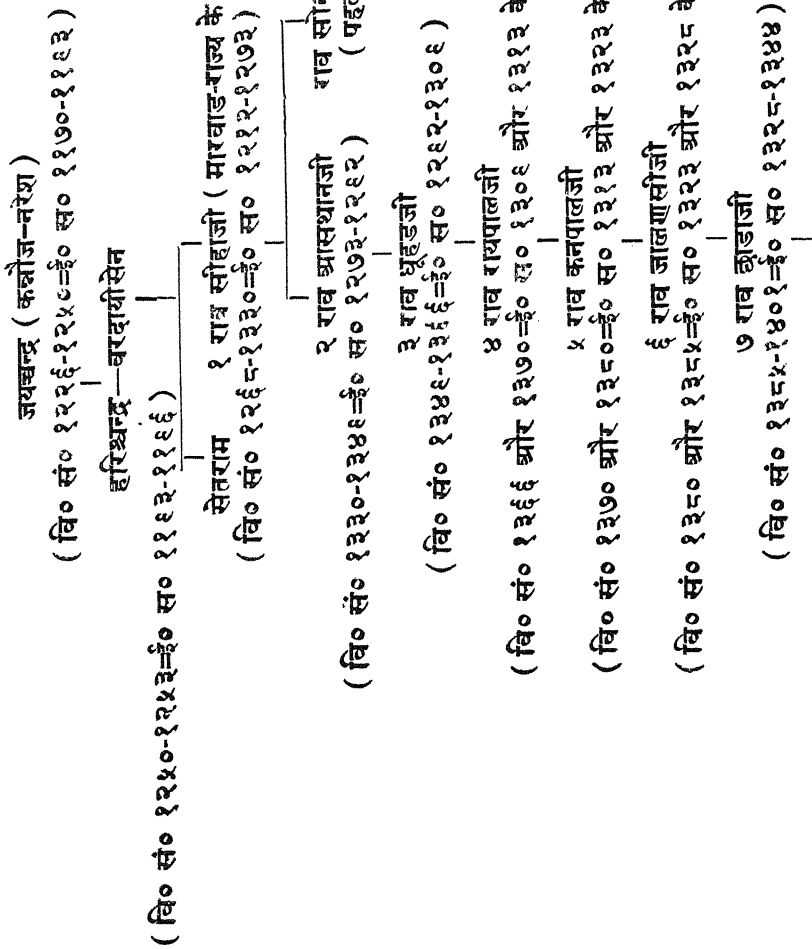 जयच्चन्द्र ( कन्नौज-नरेश )
( वि० सं० १२२६-१२५०=ई० स० ११७०-११९३ )
हरिश्चन्द्र—वरदायीसेन
( वि० सं० १२५०-१२५३=ई० स० ११९३-११९६ )
सेतराम १ राव सीहाजी ( मारवाड-राज्य के
( वि० सं० १२६८-१३३०=ई० स० १२१२-१२७३ )
२ राव आसथानजी राव सोनि
( वि० सं० १३३०-१३४८=ई० स० १२७३-१२९२ ) ( पहल
३ राव धूहडजी
( वि० सं० १३४९-१३६६=ई० स० १२९२-१३०९ )
४ राव रायपालजी
( वि० सं० १३६६ और १३७०=ई० स० १३०९ और १३१३ के
५ राव कनपालजी
( वि० सं० १३७० और १३८०=ई० स० १३१३ और १३२३ के
६ राव जालणसीजी
( वि० सं० १३८० और १३८५=ई० स० १३२३ और १३२८ के
७ राव छाडाजी
( वि० सं० १३८५-१४०१=ई० स० १३२८-१३४४ )